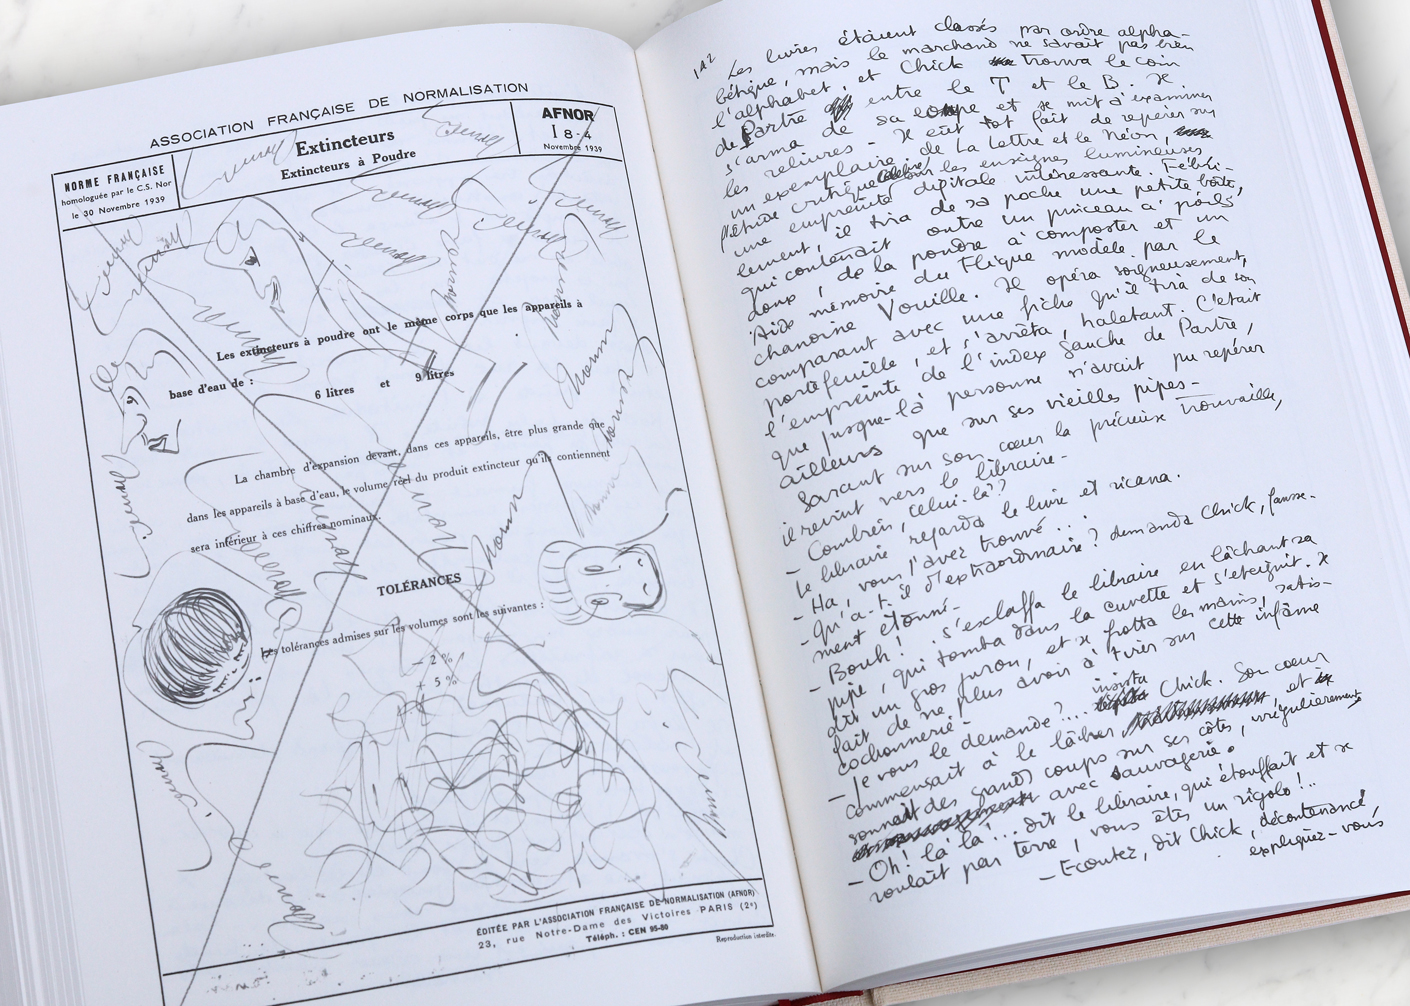 ASSOCIATION FRANÇAISE DE NORMALISATION
NORME FRANÇAISE
homologuée par le C.S. Nor
le 30 Novembre 1939
Extincteurs
Extincteurs à Poudre
AFNOR
I 8-4
Novembre 1939
Les extincteurs à poudre ont le même corps que les appareils à
base d'eau de : 6 litres et 9 litres
La chambre d'expansion devant, dans ces appareils, être plus grande que
dans les appareils à base d'eau, le volume réel du produit extincteur qu'ils contiennent
sera inférieur à ces chiffres nominaux.
TOLÉRANCES
Les tolérances admises sur les volumes sont les suivantes :
— 2 %
+ 5 %
ÉDITÉE PAR L'ASSOCIATION FRANÇAISE DE NORMALISATION (AFNOR)
23, rue Notre-Dame des Victoires PARIS (2e)
Téléph. : CEN 95-80
Reproduction interdite.
142
Les livres étaient classés par ordre alpha-
bétique, mais le marchand ne savait pas bien
l'alphabet, et Chick trouva le coin
de Partre entre le T et le B. Il
s'arma de sa loupe et se mit à examiner
les reliures - Il eût tôt fait de repérer sur
un exemplaire de La Lettre et le Néon,
l'étude critique célèbre sur les enseignes lumineuses
une empreinte digitale intéressante. Fébri-
lement, il tira de sa poche une petite boîte,
qui contenait outre un pinceau à poils
doux, de la poudre à composter et un
Aide mémoire du Flique modèle par le
chanoine Vouille. Il opéra soigneusement,
comparant avec une fiche qu'il tira de son
portefeuille, et s'arrêta, haletant. C'était
l'empreinte de l'index gauche de Partre,
que jusque-là personne n'avait pu repérer
ailleurs que sur ses vieilles pipes -
Serrant sur son cœur la précieuse trouvaille,
il revint vers le libraire -
- Combien, celui-là ?
le libraire regarda le livre et ricana.
- Ha, vous l'avez trouvé ...
- Qu'a-t-il d'extraordinaire ? demanda Chick, fausse-
ment étonné -
- Bouh !.. s'esclaffa le libraire en lâchant sa
pipe, qui tomba dans la cuvette et s'éteignit. Il
dit un gros juron, et se frotta les mains, satis-
fait de ne plus avoir à tirer sur cette infâme
cochonnerie -
- Je vous le demande ?... insista Chick. Son cœur
commençait à le lâcher, et
sonnait des grands coups sur ses côtes, irrégulièrement
avec sauvagerie.
- Oh ! la la !... dit le libraire, qui étouffait et se
roulait par terre, vous etes un rigolo !..
- Ecoutez, dit Chick, décontenancé,
expliquez-vous